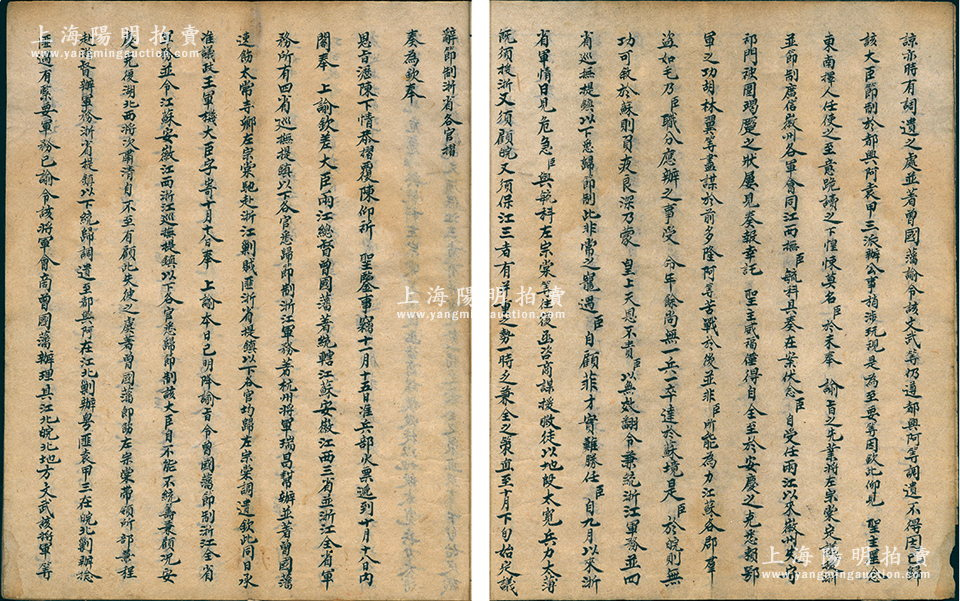 上海陽明拍賣
www.yangmingauction.com
辭節制浙省各官摺
奏為欽奉
恩旨瀝陳下情恭摺覆陳仰祈 聖鑒事竊十一月十五日准兵部火票遞到十月十八日內
閣奉 上諭欽差大臣兩江總督曾國藩著統轄江蘇安徽江西三省並浙江全省軍
務所有四省巡撫提鎮以下各官悉歸節制浙江軍務著杭州將軍瑞昌幫辦並著曾國藩
速飭太常寺卿左宗棠馳赴浙江剿賊匪浙省提鎮以下各官均歸左宗棠調遣欽此同日承
准議政王軍機大臣字寄十月十八日奉 上諭本日已明降諭旨令曾國藩節制浙江全省
軍務並令江蘇安徽江西浙江巡撫提鎮以下各官悉歸節制該大臣自不能不統籌兼顧況安
慶克復湖北西將次肅清自不至有顧此失彼之虞著曾國藩即飭左宗棠帶領所部兼程
赴浙督辦軍務浙省提鎮以下統歸調遣至都興阿在江北剿辦粵匪袁甲三在皖北剿辦捻
匪遇有緊要軍務已諭令該將軍會商曾國藩辦理其江北皖北地方文武該將軍等
諒亦時有調遣之處並著曾國藩諭令該文武等仍遵都興阿等調遣不得因已歸
該大臣節制於都興阿袁甲三派辦公事稍涉玩視是為至要等因欽此仰見 聖主軫念
東南擇人任使之至意跪讀之下惶悚莫名臣於未奉 諭旨之先業將左宗棠定議援浙
並節制廣信徽州各軍會同江西撫臣毓科具奏在案伏念臣自受任兩江以來徽州失守
祁門被圍竭蹙之狀屢見奏報幸託 聖主威福僅得自全至於安慶之克悉賴鄂
軍之功胡林翼等籌謀於前多隆阿等苦戰於後並非臣所能為力江蘇各郡羣
盜如毛乃臣職分應辦之事受 今年餘尚無一兵一卒達於蘇境是臣於皖則無
功可敘於蘇則負疚良深乃蒙 皇上天恩不責臣以無效翻令兼統浙江軍務並四
省巡撫提鎮以下悉歸節制此非常之寵遇臣自顧非才實難勝任臣自九月以來浙
省軍情日見危急臣與毓科左宗棠等往復函咨商謀援救徒以地段太寬兵力太薄
既須援浙又須顧皖又須保江三者有并重之勢一時乏兼全之策直至十月下旬始定議
上海陽明拍賣
www.yangmingauction.com
上海陽明拍賣
www.yangmingauction.com
上海陽明拍賣
www.yangmingauction.com